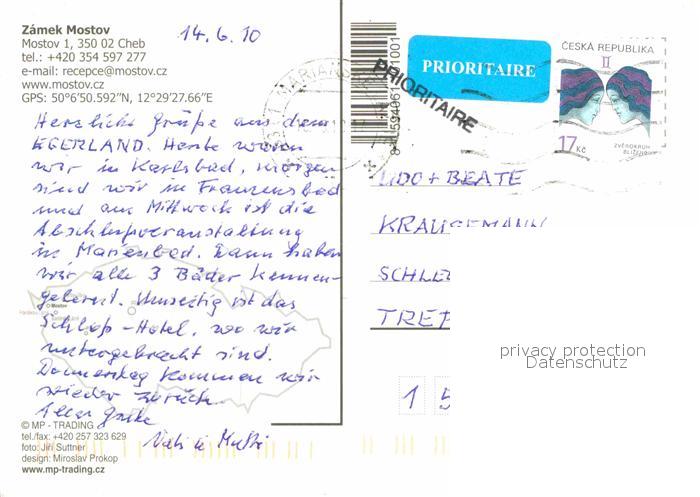 Zámek Mostov
Mostov 1, 350 02 Cheb
tel.: +420 354 597 277
e-mail: recepce@mostov.cz
www.mostov.cz
GPS: 50°6'50.592"N, 12°29'27.66"E
14.6.10
Herzliche Grüße aus dem
EGERLAND. Heute waren
wir in Karlsbad, morgen
sind wir in Franzensbad
und am Mittwoch ist die
Abschlußveranstaltung
in Marienbad. Dann haben
wir alle 3 Bäder kennen-
gelernt. Umseitig ist das
Schloß-Hotel, wo wir
untergebracht sind.
Donnerstag kommen wir
wieder zurück.
Alles Gute
Mostov
© MP - TRADING
tel./fax: +420 257 323 629
foto: Jiří Suttner
design: Miroslav Prokop
www.mp-trading.cz
PRIORITAIRE
PRIORITAIRE
ČESKÁ REPUBLIKA
II
17 Kč
ZVĚROKRUH
BLÍŽENCI
UDO + BEATE
privacy protection
Datenschutz
1 5